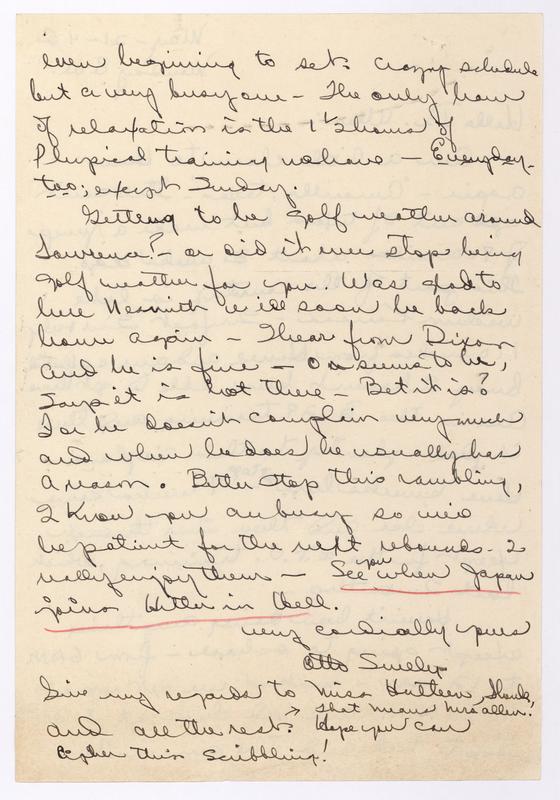 even beginning to set. Crazy schedule
but a very busy one - The only hour
of relaxation is the 1½ hours of
Physical training we have - Everyday -
too; except Sunday.
Getting to be golf weather around
Lawrence? - or did it ever stop being
golf weather for you. Was glad to
hear Naismith Jr. will soon be back
home again - I hear from Dixon
and he is fine - or seems to be,
Says it is hot there - Bet it is?
For he doesn't complain very much
and when he does he usually has
a reason. Better stop this rambling,
I know you are busy so will
be patient for the next rebounds. I
really enjoy them - See you when Japan
joins Hitler in Hell.
very cordially yours
Give my regards to Miss
and all the rest. → that means Mrs Allen. Hope you can
this scribbling!